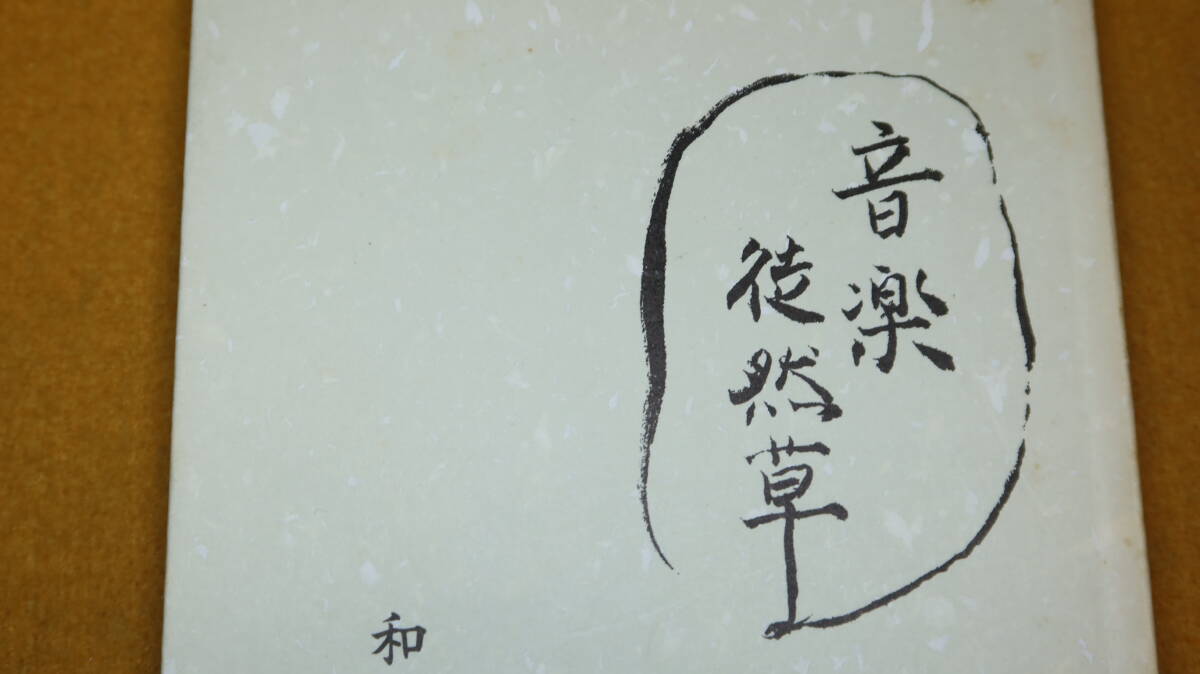 音楽
徒然草
和